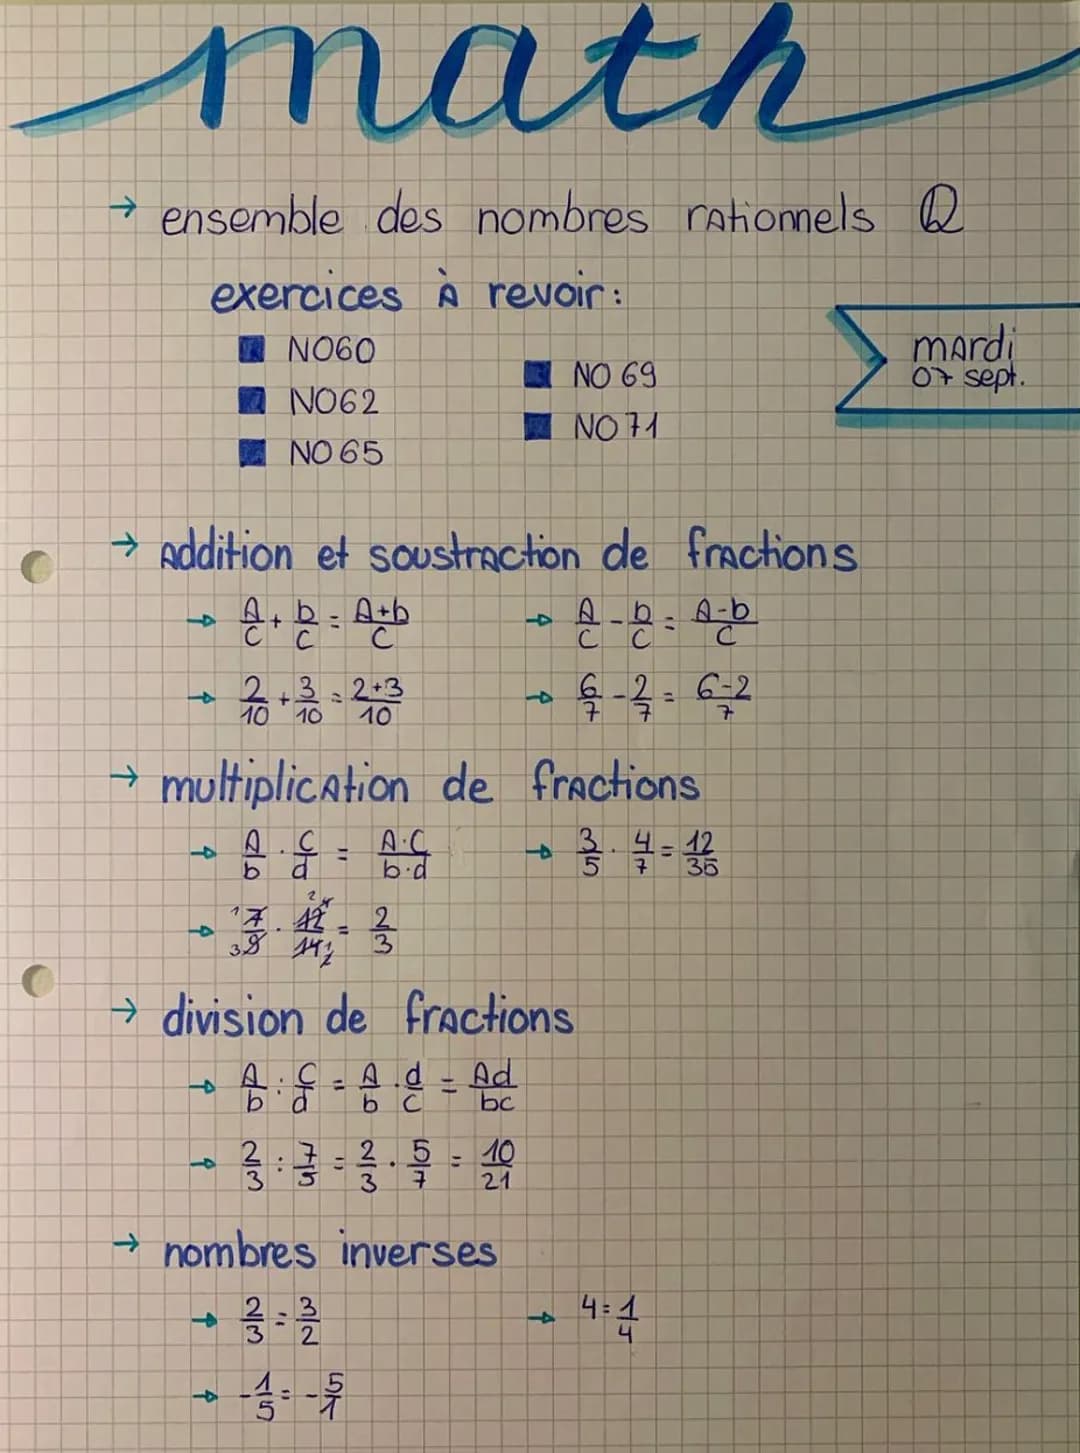 math
→ ensemble des nombres rationnels ℚ
exercices à revoir:
■ NO60
■ NO62
■ NO65
■ NO 69
■ NO 71
mardi
07 sept.
→ addition et soustraction de fractions
→ A/C + b/C = A+b/C → A/C - b/C = A-b/C
→ 2/10 + 3/10 = 2+3/10 → 6/7 - 2/7 = 6-2/7
→ multiplication de fractions
→ A/b · C/d = A·C/b·d → 3/5 · 4/7 = 12/35
→ 7/9 · 12/14 = 2/3
→ division de fractions
→ A/b : C/d = A/b · d/C = Ad/bc
→ 2/3 : 7/5 = 2/3 · 5/7 = 10/21
→ nombres inverses
→ 2/3 = 3/2 → 4 = 1/4
→ -1/5 = -5/1